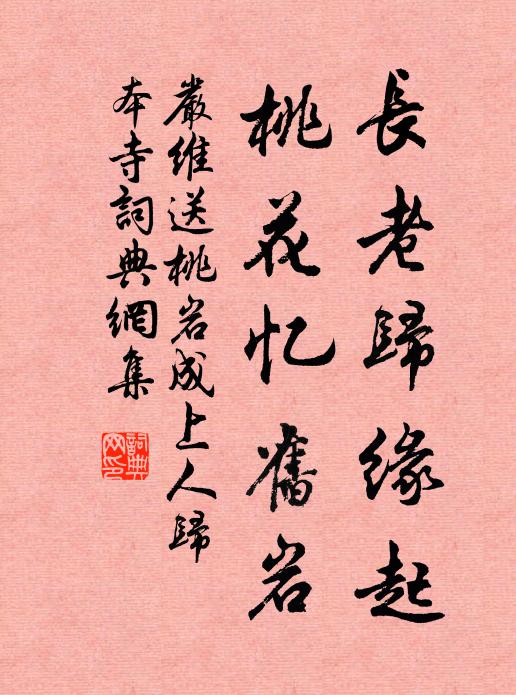 長老歸緣起
桃花忆舊岩
嚴維送桃岩成上人歸
本寺詞典網集
詞典
网印